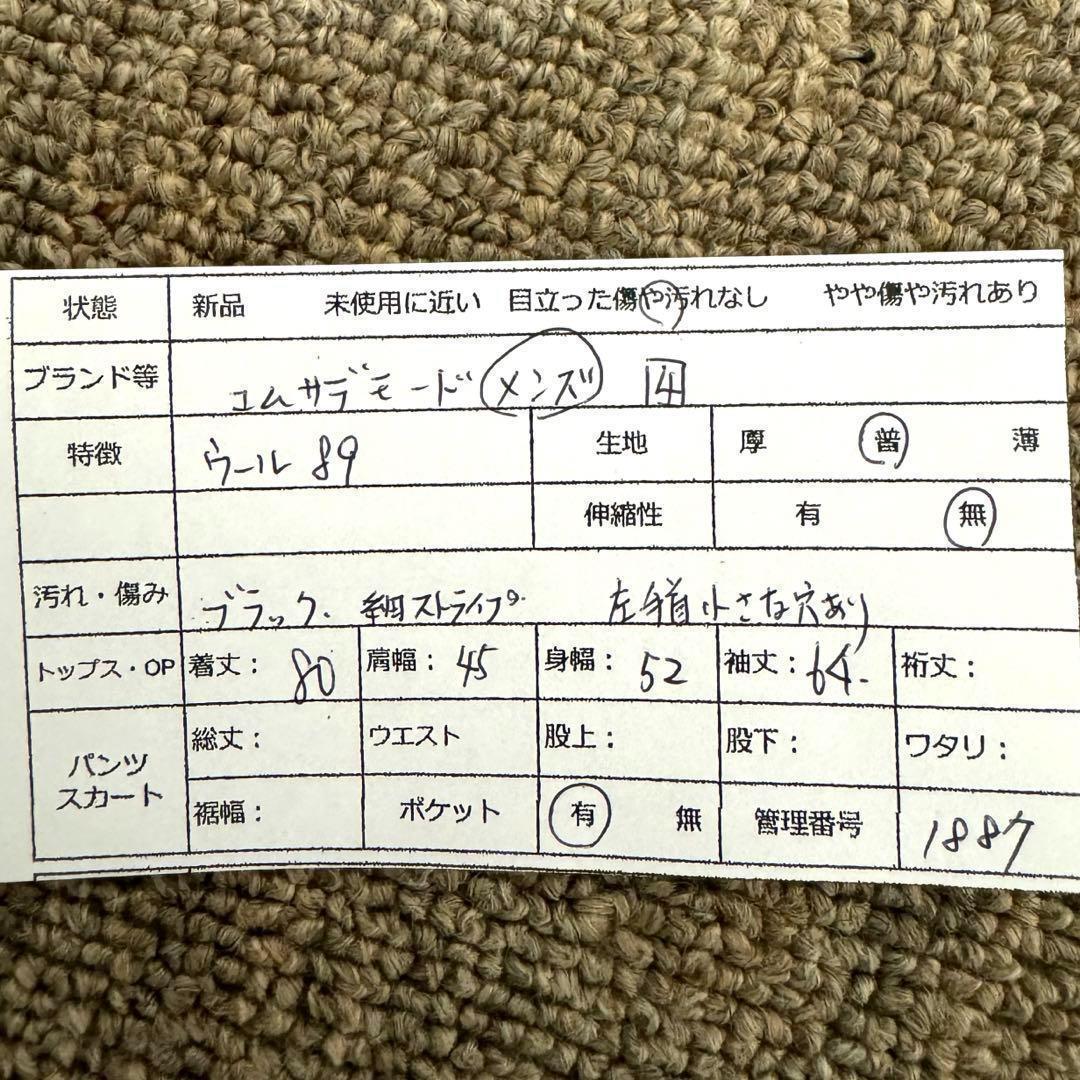 状態 新品 未使用に近い 目立った傷や汚れなし やや傷や汚れあり
ブランド等 コムサデモード メンズ 4
特徴 ウール 89 生地 厚 普 薄
伸縮性 有 無
汚れ・傷み ブラック. 細ストライプ. 左手首 小さな穴あり
トップス・OP 着丈: 80 肩幅: 45 身幅: 52 袖丈: 64. 裄丈:
パンツ スカート 総丈: ウエスト 股上: 股下: ワタリ:
裾幅: ポケット 有 無 管理番号 1887